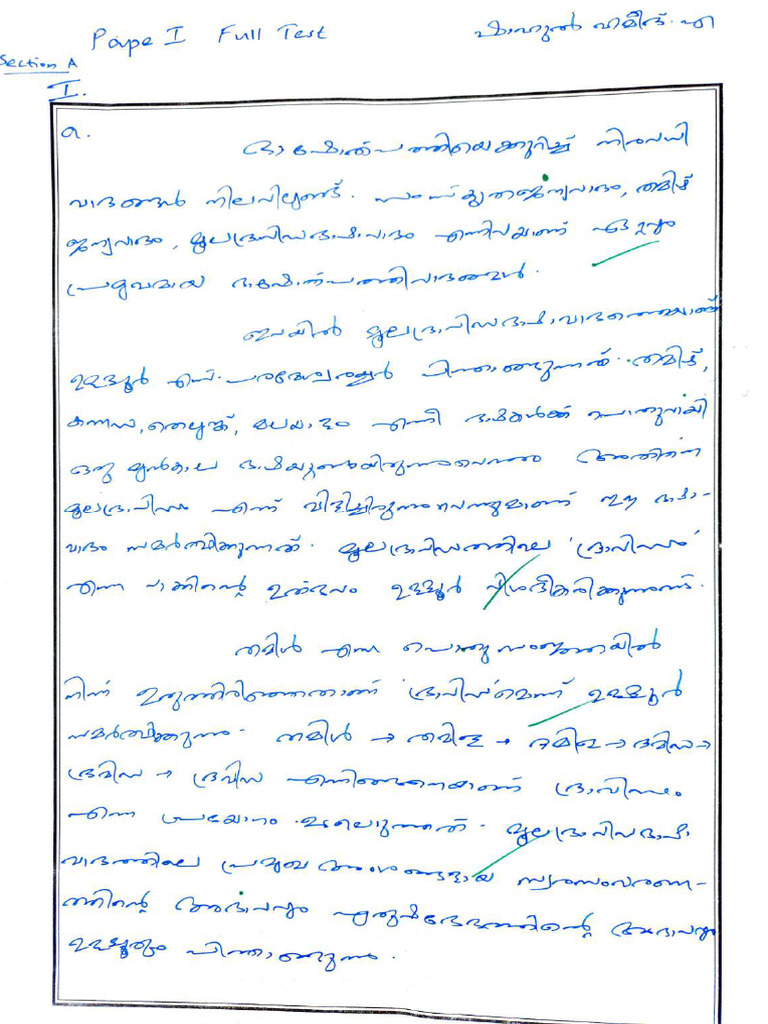 Pape I Full Test ഷാഹുൽ ഹമീദ്. എ
Section A
I.
a.
ഭാഷോത്പത്തിയെക്കുറിച്ച് നിരവധി
വാദങ്ങൾ നിലവിലുണ്ട്. സംസ്കൃതജന്യവാദം, തമിഴ്
ജന്യവാദം, മൂലദ്രാവിഡഭാഷാവാദം എന്നിവയാണ് ഏറ്റവും
പ്രമുഖമായ ഭാഷോത്പത്തിവാദങ്ങൾ.
ഇവയിൽ മൂലദ്രാവിഡഭാഷാവാദത്തെയാണ്
ഉള്ളൂർ എസ്. പരമേശ്വരയ്യർ പിന്താങ്ങുന്നത്. തമിഴ്,
കന്നഡ, തെലുങ്ക്, മലയാളം എന്നീ ഭാഷകൾക്ക് പൊതുവായി
ഒരു മുൻകാല ഭാഷയുണ്ടായിരുന്നുവെന്നും അതിനെ
മൂലദ്രാവിഡം എന്ന് വിളിച്ചിരുന്നുവെന്നുമാണ് ഈ ഭാഷാ-
വാദം സമർത്ഥിക്കുന്നത്. മൂലദ്രാവിഡത്തിലെ 'ദ്രാവിഡം'
എന്ന വാക്കിന്റെ ഉത്ഭവം ഉള്ളൂർ വിശദീകരിക്കുന്നുണ്ട്.
തമിൾ എന്ന പൊതുസംജ്ഞയിൽ
നിന്ന് ഉരുത്തിരിഞ്ഞതാണ് 'ദ്രാവിഡ'മെന്ന് ഉള്ളൂർ
സമർത്ഥിക്കുന്നു. തമിൾ → തമിള → ദമിള → ദമിഡ →
ദ്രമിഡ → ദ്രവിഡ എന്നിങ്ങനെയാണ് ദ്രാവിഡം
എന്ന പ്രയോഗം ഉടലെടുത്തത്. മൂലദ്രാവിഡഭാഷാ
വാദത്തിലെ പ്രമുഖ അംശങ്ങളായ സ്വരസംവരണ-
ത്തിന്റെ അഭാവവും പുരുഷഭേദത്തിന്റെ അഭാവവും
ഉള്ളൂരും പിന്താങ്ങുന്നു.